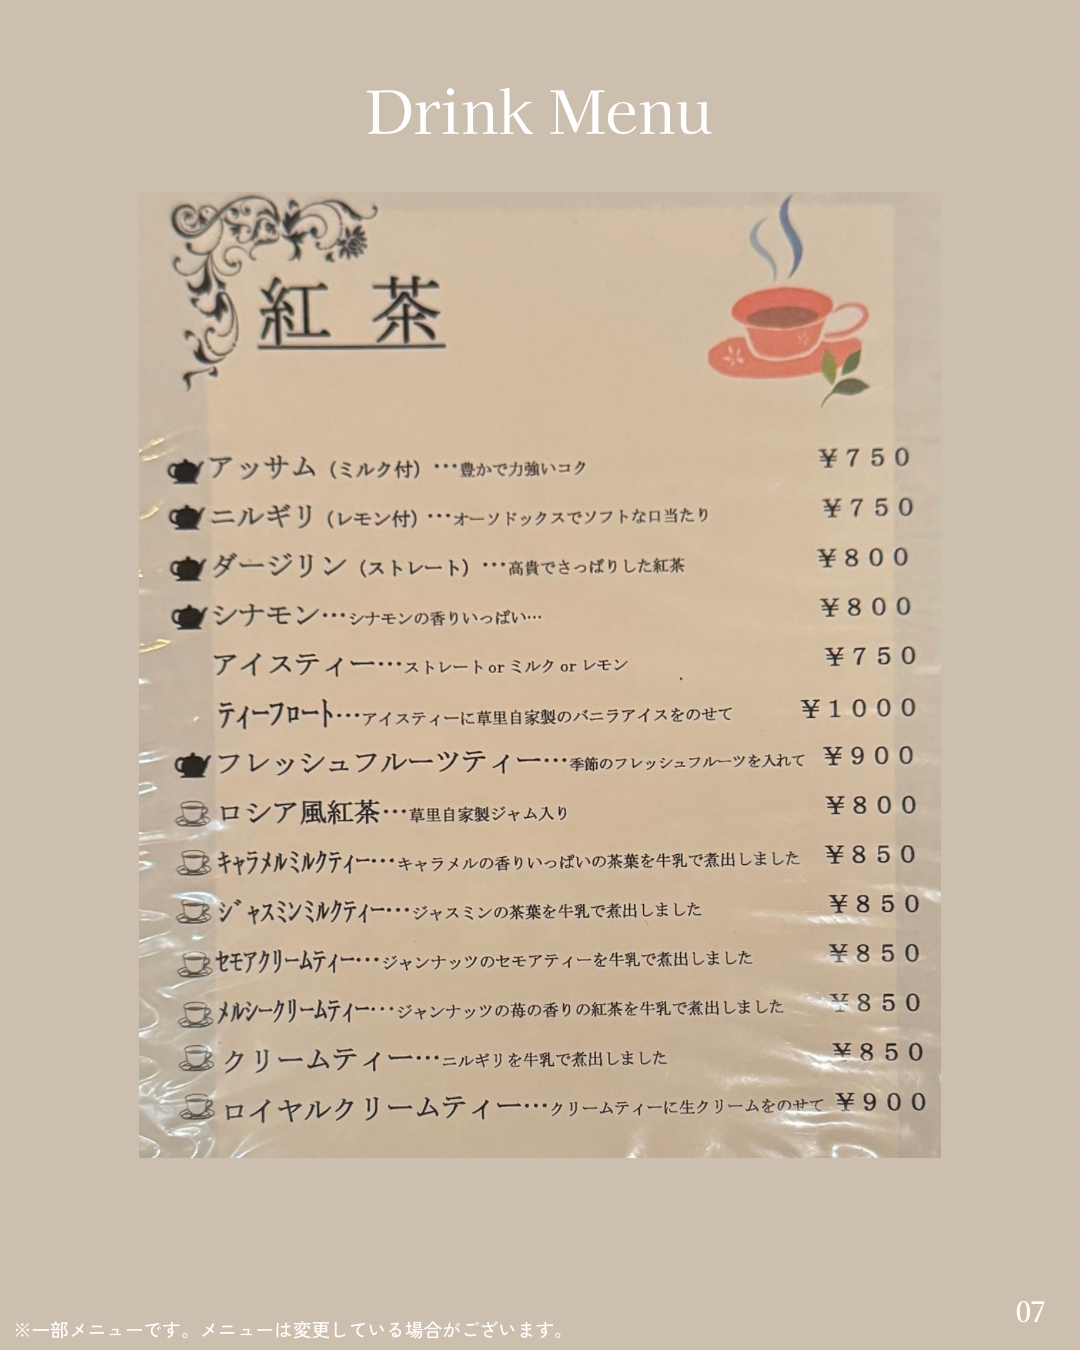 Drink Menu
紅 茶
アッサム（ミルク付）…豊かで力強いコク ￥７５０
ニルギリ（レモン付）…オーソドックスでソフトな口当たり ￥７５０
ダージリン（ストレート）…高貴でさっぱりした紅茶 ￥８００
シナモン…シナモンの香りいっぱい… ￥８００
アイスティー…ストレート or ミルク or レモン ￥７５０
ティーフロート…アイスティーに草里自家製のバニラアイスをのせて ￥１０００
フレッシュフルーツティー…季節のフレッシュフルーツを入れて ￥９００
ロシア風紅茶…草里自家製ジャム入り ￥８００
キャラメルミルクティー…キャラメルの香りいっぱいの茶葉を牛乳で煮出しました ￥８５０
ジャスミンミルクティー…ジャスミンの茶葉を牛乳で煮出しました ￥８５０
セモアクリームティー…ジャンナッツのセモアティーを牛乳で煮出しました ￥８５０
メルシークリームティー…ジャンナッツの苺の香りの紅茶を牛乳で煮出しました ￥８５０
クリームティー…ニルギリを牛乳で煮出しました ￥８５０
ロイヤルクリームティー…クリームティーに生クリームをのせて ￥９００
07
※一部メニューです。メニューは変更している場合がございます。